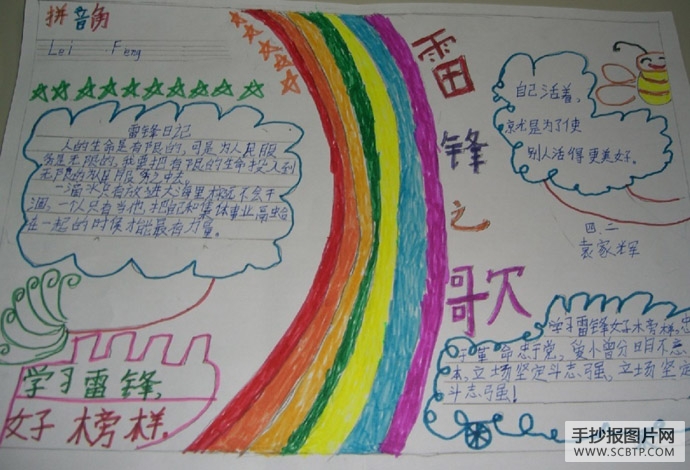 拼音角
Lei Feng
雷锋日记
人的生命是有限的,可是为人民服
务是无限的,我要把有限的生命投入到
无限的为人民服务之中去
一滴水只有放进大海里才永远不会干
涸,一个人只有当他把自己和集体事业融合
在一起的时候才能最有力量。
学习雷锋,
好榜样.
雷
锋
之
歌
自己活着,
就是为了使
别人活得更美好。
四.二
袁家辉
学习雷锋好榜样,忠
于革命忠于党,爱憎分明不忘
本,立场坚定斗志强,立场坚定
斗志强!
手抄报图片网
WWW.SCBTP.COM